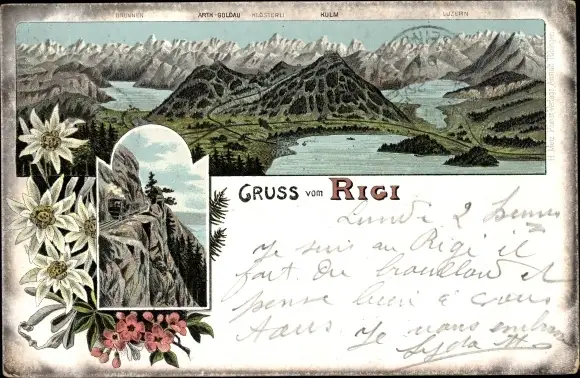 BRUNNEN ARTH-GOLDAU KLÖSTERLI KULM LUZERN
GRUSS vom RIGI
Lundi 2 heures
Je suis au Rigi il
fait du brouillon et
pense bien à vous
tous. Je vous embrasse